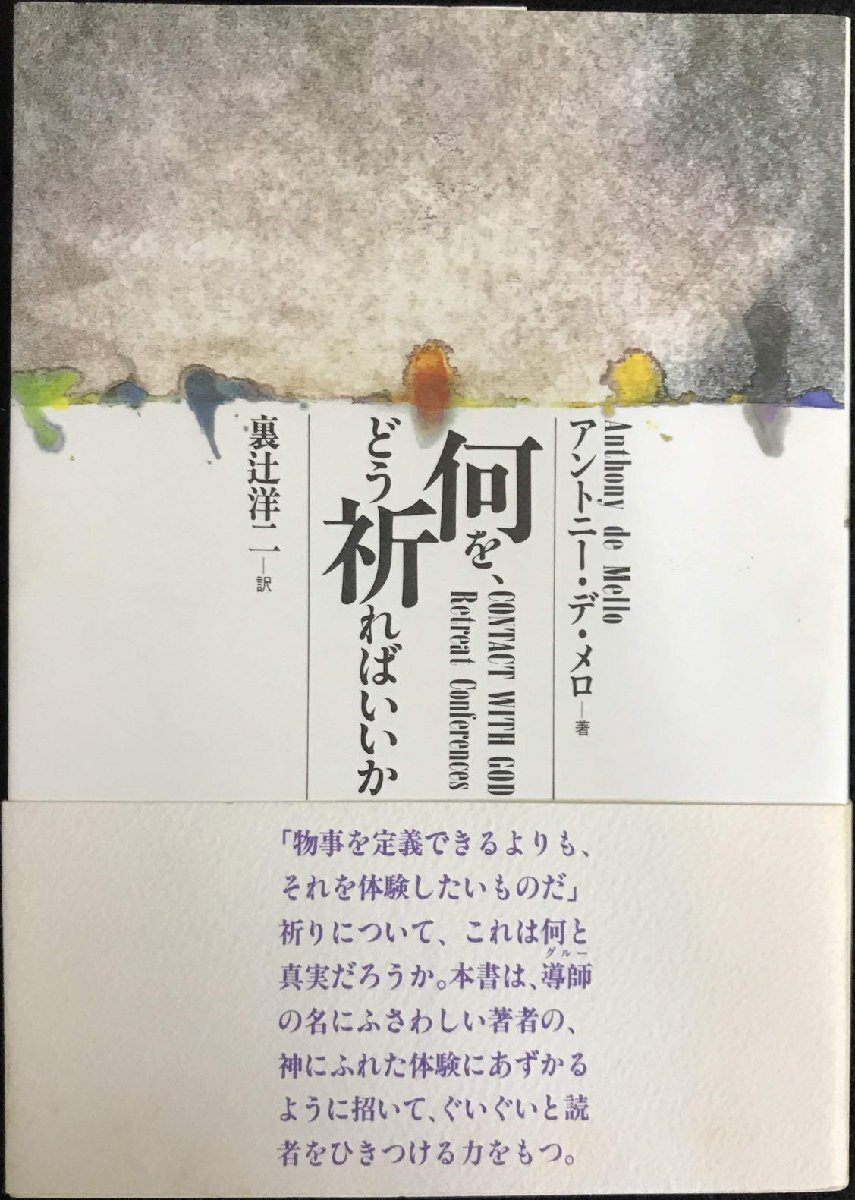 Anthony de Mello
アントニー・デ・メロ—著
何を、
どう祈ればいいか
CONTACT WITH GOD
Retreat Conferences
裏辻洋二—訳
「物事を定義できるよりも、
それを体験したいものだ」
祈りについて、これは何と
真実だろうか。本書は、導師
グルー
の名にふさわしい著者の、
神にふれた体験にあずかる
ように招いて、ぐいぐいと読
者をひきつける力をもつ。